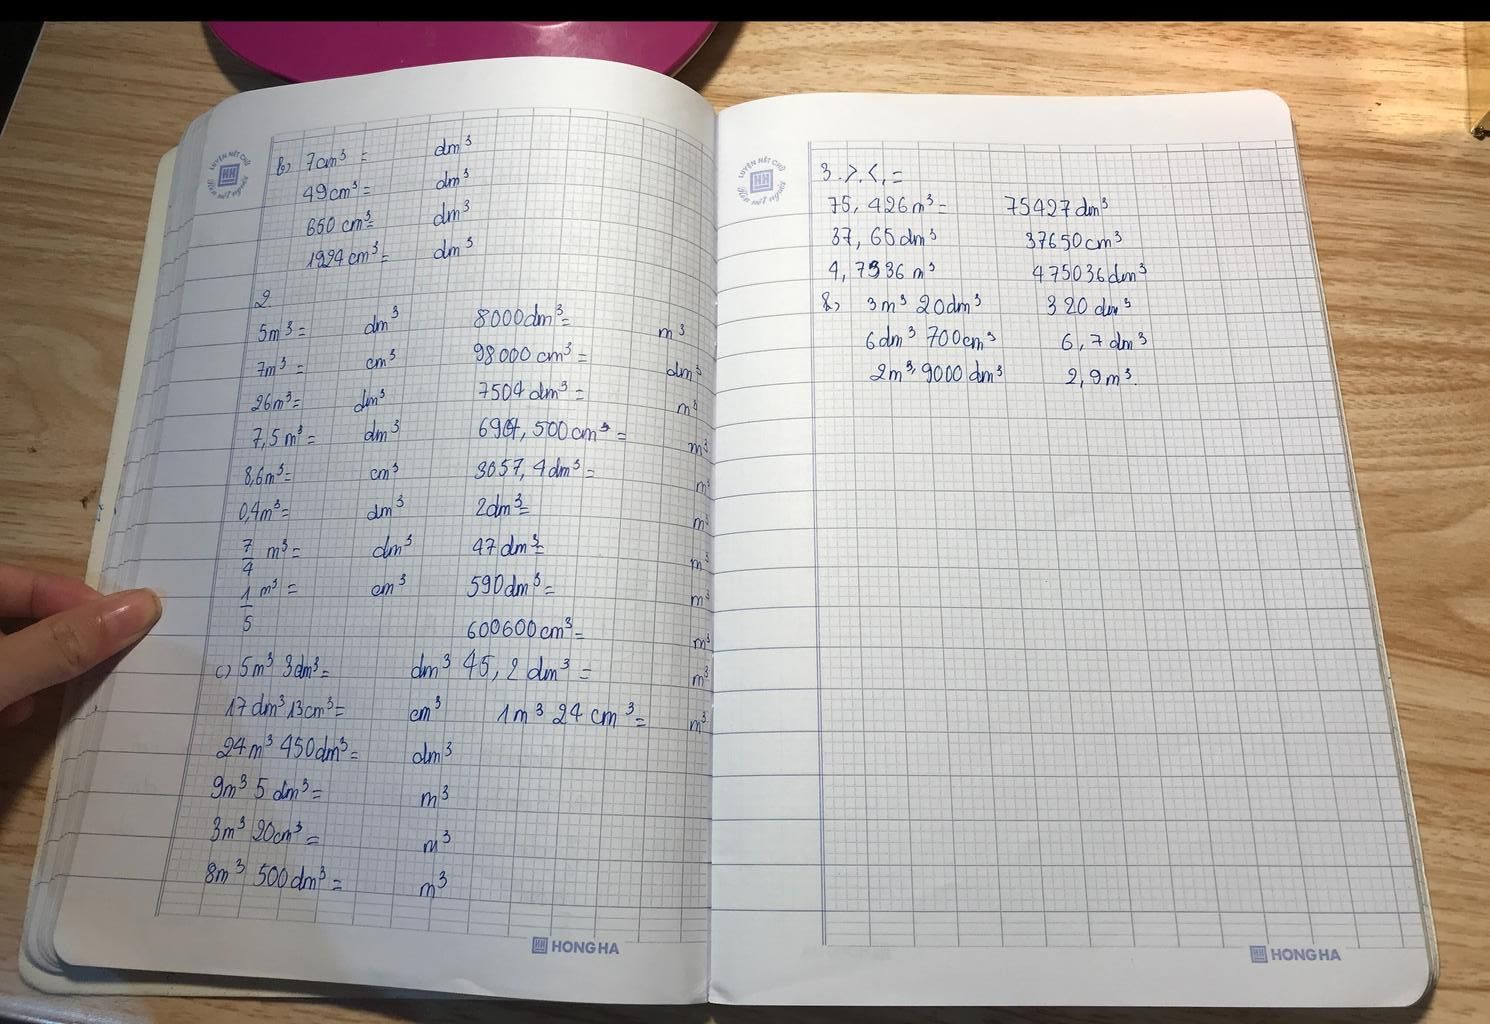 LUYỆN NÉT CHỮ
Rèn nết người
b) 7cm³ = dm³
49cm³ = dm³
650 cm³ = dm³
1924cm³ = dm³
2.
5m³ = dm³ 8000dm³ = m³
7m³ = cm³ 98000 cm³ = dm³
26m³ = dm³ 7504 dm³ = m³
7,5m³ = dm³ 500cm³ = m³
8,6m³ = cm³ 3057,4dm³ = m³
0,4m³ = dm³ 2dm³ = m³
7/4 m³ = dm³ 47dm³ = m³
1/5 m³ = cm³ 590dm³ = m³
600600cm³ = m³
c) 5m³ 3dm³ = dm³ 45,2 dm³ = m³
17dm³ 13cm³ = cm³ 1m³ 24 cm³ = m³
24m³ 450dm³ = dm³
9m³ 5 dm³ = m³
3m³ 20cm³ = m³
8m³ 500dm³ = m³
HONG HA
LUYỆN NÉT CHỮ
Rèn nết người
3. >. <, =
75,426m³ = 75427dm³
37,65dm³ 37650cm³
m³ 475036dm³
b) 3m³ 20dm³ 320 dm³
6dm³ 700cm³ 6,7dm³
2m³ 9000 dm³ 2,9m³.
HONG HA